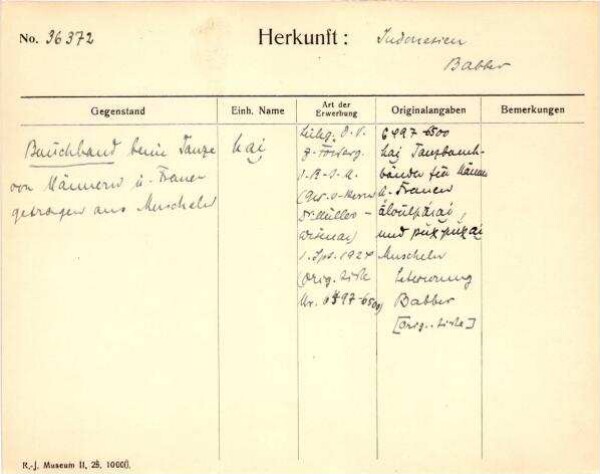 No. 36372
Herkunft:
Indonesien
Babber
Gegenstand
Einh. Name
Art der Erwerbung
Originalangaben
Bemerkungen
Bauchband beim Tanze
von Männern u. Frauen
getragen aus Muscheln
kaj
Leihg. D. G.
z. Förderg.
(Ges. v. Herrn
Dr Müller-
Wismar)
1. Spt. 1927
(Orig. Liste
Nr. 6497-6500)
6497-6500
kaj Tanzbauch-
bänder für Männer
u. Frauen
und
Muscheln
Babber
[Orig. Liste]
R.-J. Museum II, 25. 10000.